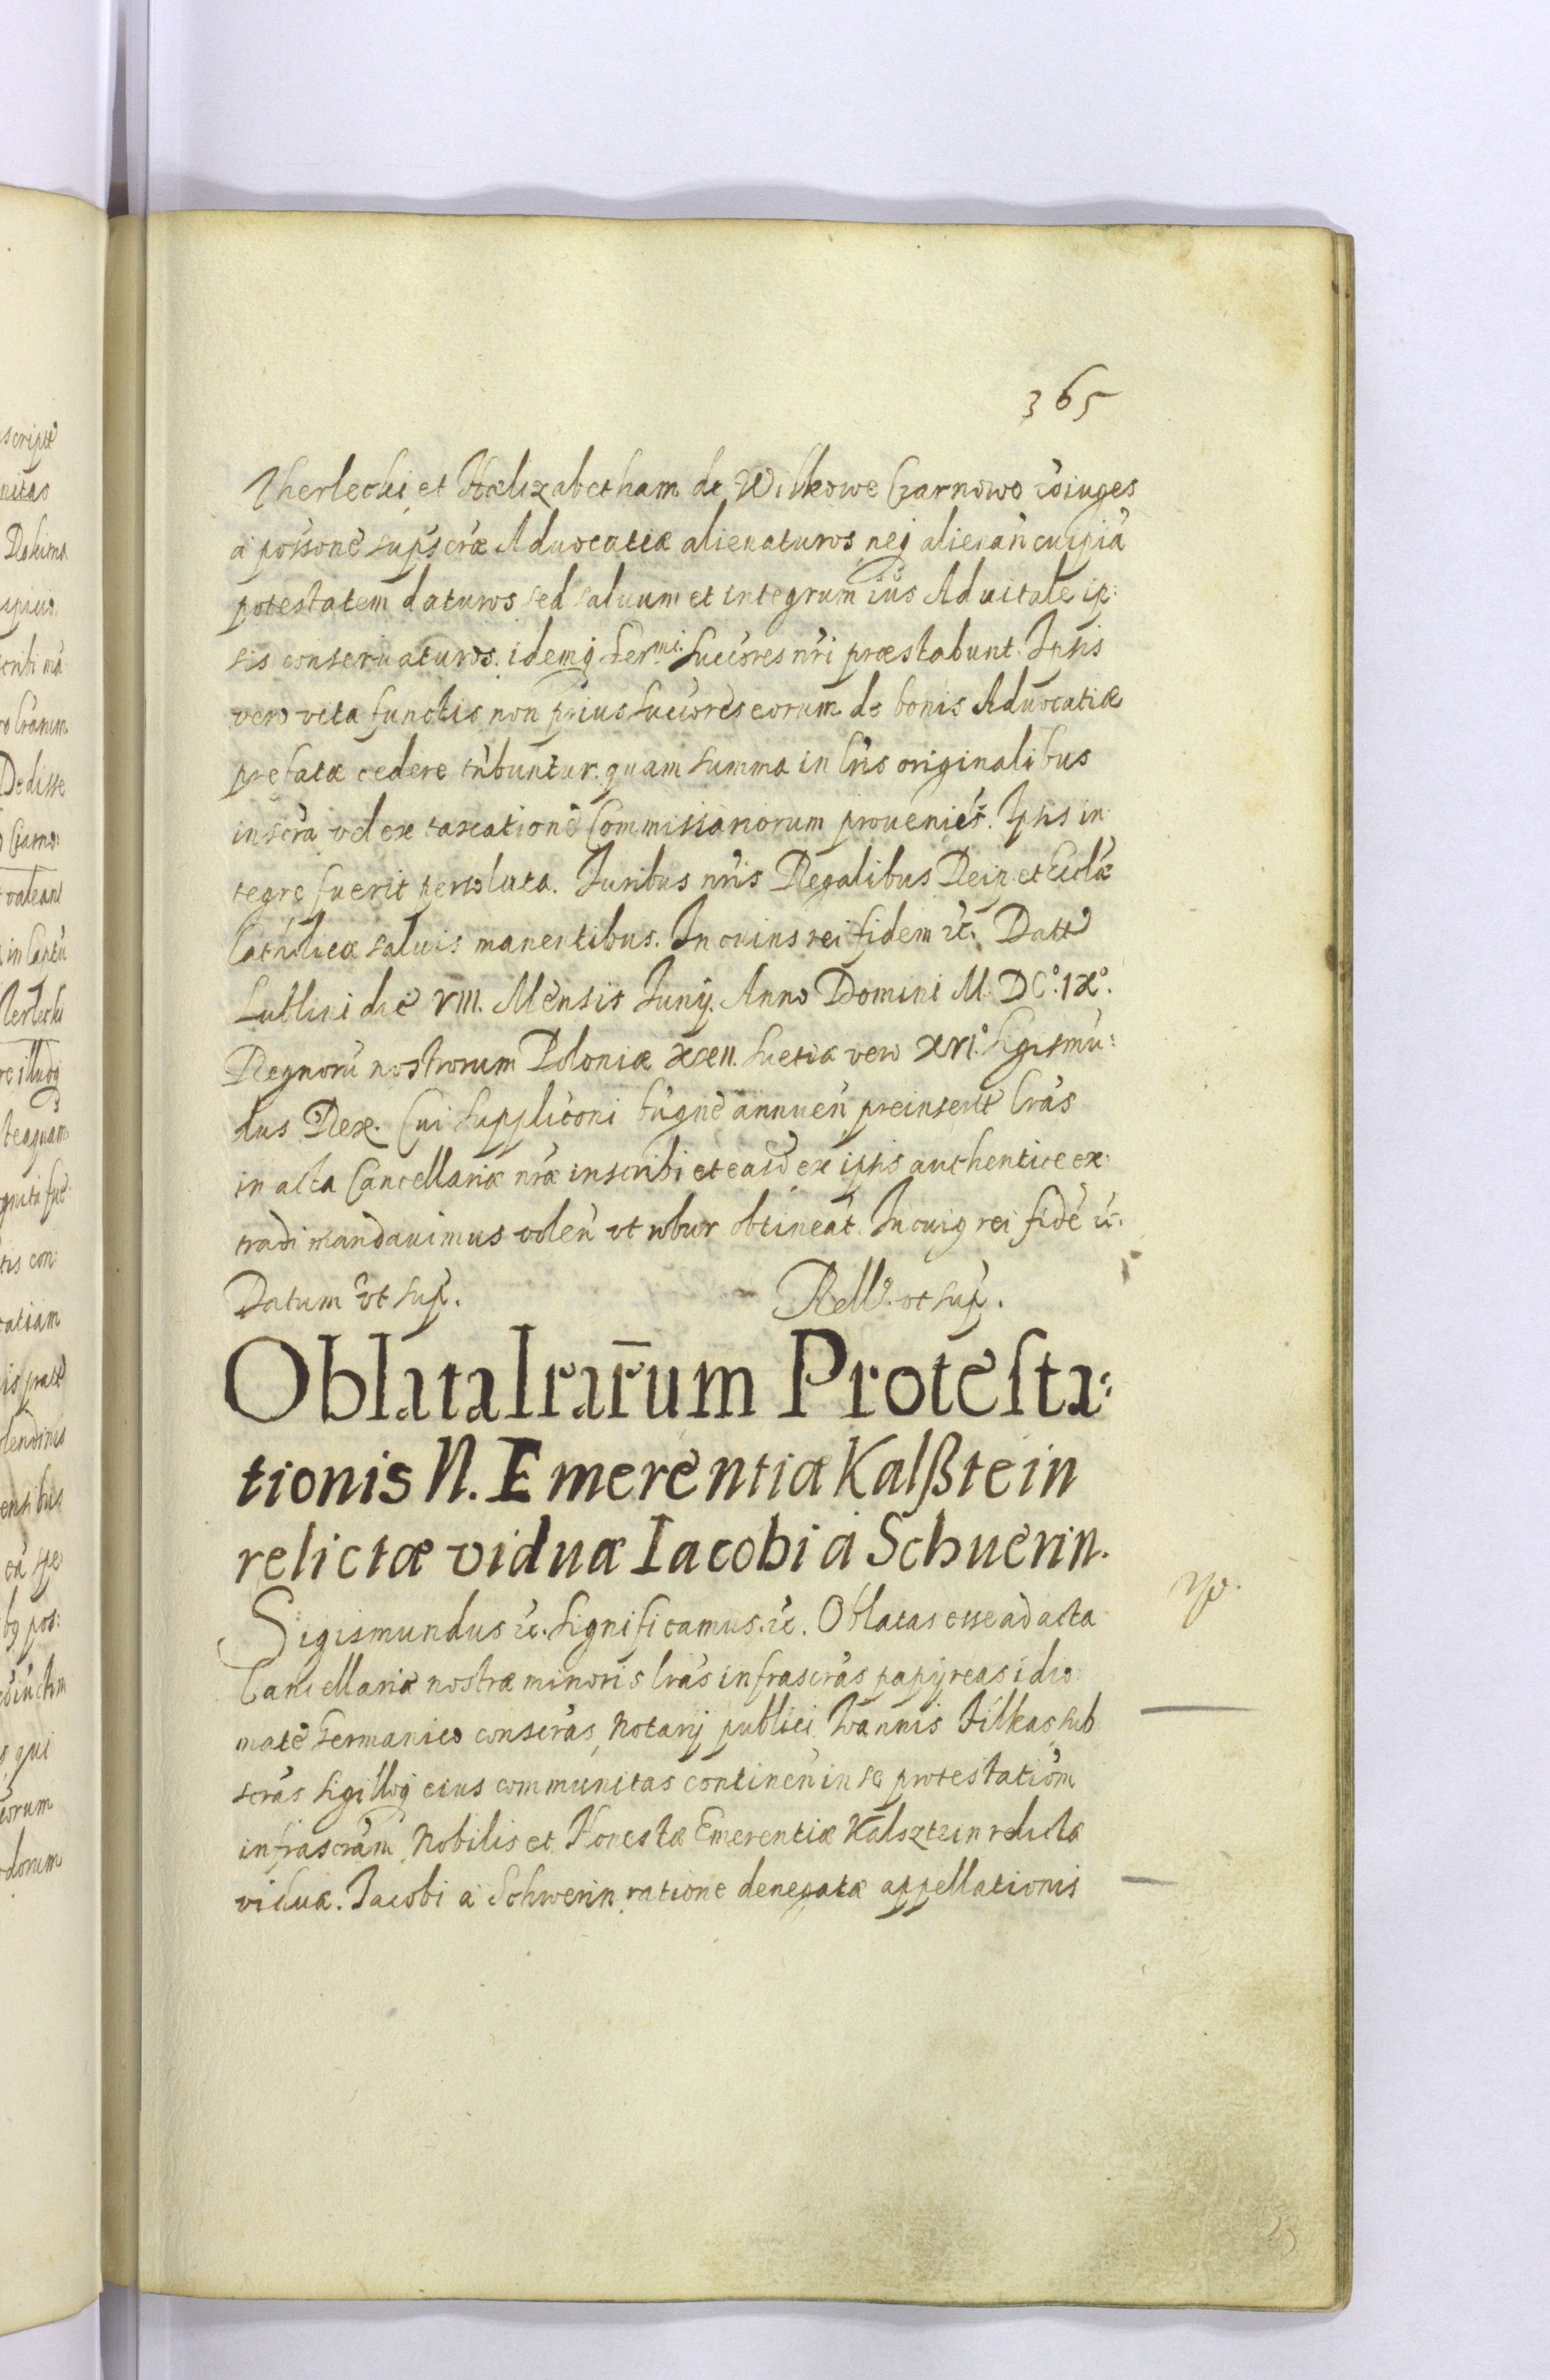 365
Therlecki et Helizabetham de Wilkowe Czarnowo coiuges
a possone supscræ Aduocatiæ alienaturos neq alienan cuipiā
potestatem daturos sed saluum et integrum ius Aduitale ip:
sis conseruaturos. idemq Ser.mi Succores nri præstabunt. Ipsis
vero vita functis non prius Succores eorum de bonis Aduocatiæ
prefatæ cedere tnbuntur. quam summa in lris originalibus
inscra vel ex taxatione Commissariorum proueniēs. Ipsis in
tegre fuerit persoluta. Iuribus nris Regalibus Reip. et Ecclæ
Catholicæ saluis manentibus. In cuius rei fidem etc. Datt
Lublini die VIII. Mensis Iunij. Anno Domini M. DC.º IXº.
Regnoru nostrorum Poloniæ XXII. Suetiæ vero XVI.º Sigismu:
dus Rex. Cui Suppliconi bnigne annuen preinsert lras
in acta Cancellariæ nræ inscribi et easd ex ipsis authentice ex:
tradi mandauimus volen vt robur obtineat. In cuiq rei fidē etc.
Datum vt sup. Rell. vt sup.
Oblata lrarum Protesta:
tionis N. Emerentiæ Kalßtein
relictæ viduæ Iacobi a Schuerin.
Sigismundus etc. Significamus. etc. Oblatas esse ad acta
Cancellariæ nostræ minoris lras infrascras papyreas idio:
mate Germanico conscras, Notarij publici Ioannis Filkas sub
scras sigilloq eius communitas continen in se protestationem
infrascram, Nobilis et Honestæ Emerentiæ Kalsztein relictæ
viduæ. Iacobi a Schwerin ratione denegatæ appellationis